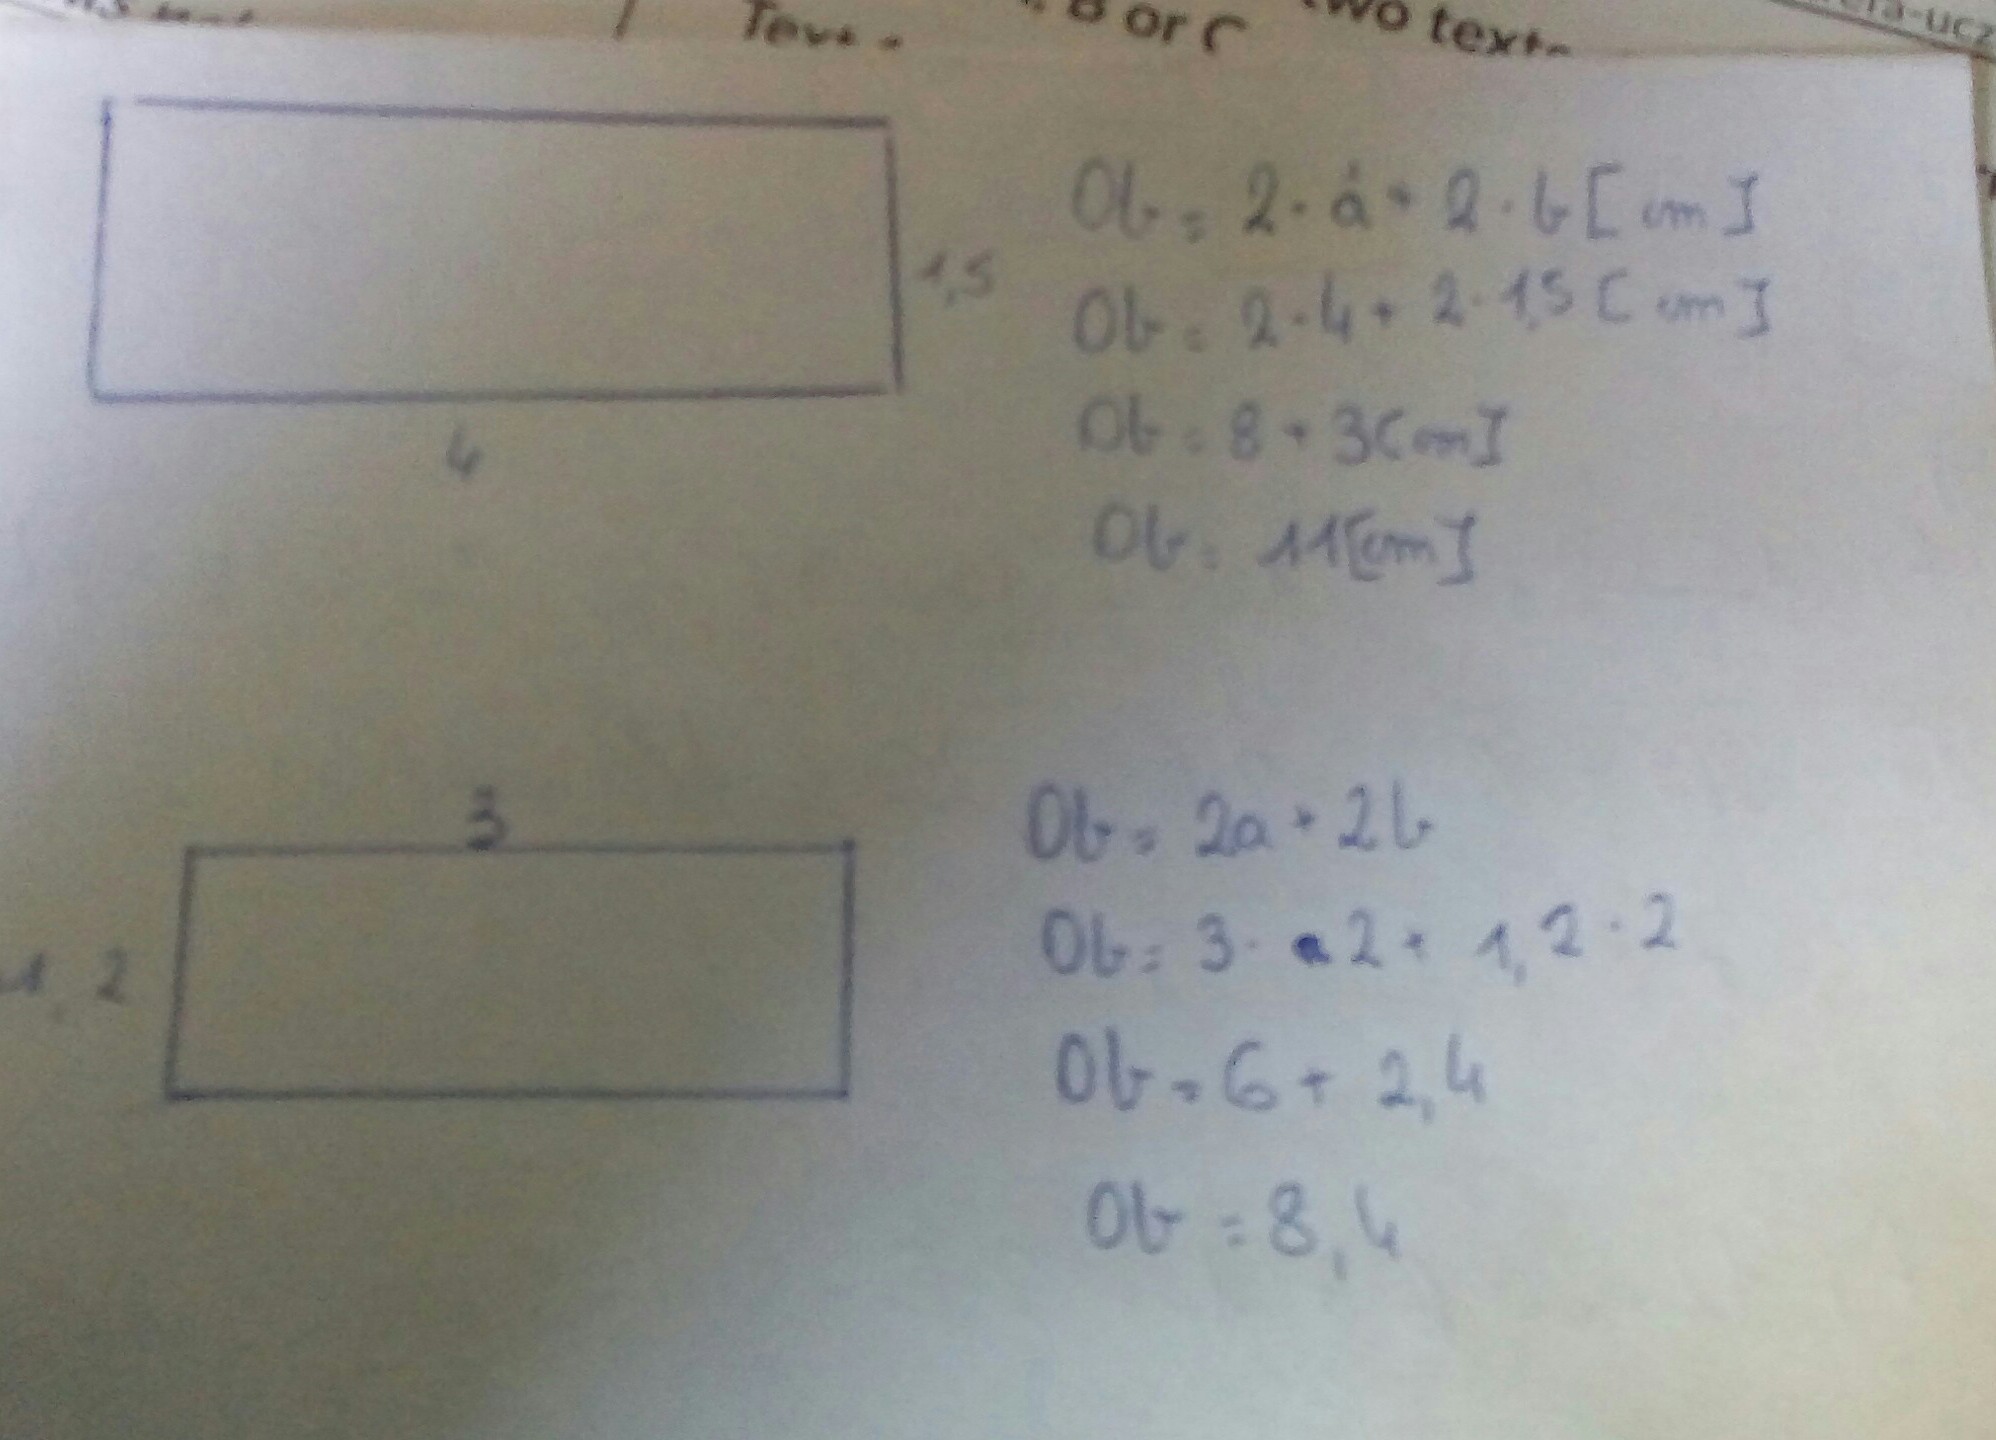 B or C two texts
1,5
4
Ob = 2 · a + 2 · b [cm]
Ob = 2 · 4 + 2 · 1,5 [cm]
Ob = 8 + 3 [cm]
Ob = 11 [cm]
3
1,2
Ob = 2a + 2b
Ob = 3 · 2 + 1,2 · 2
Ob = 6 + 2,4
Ob = 8,4